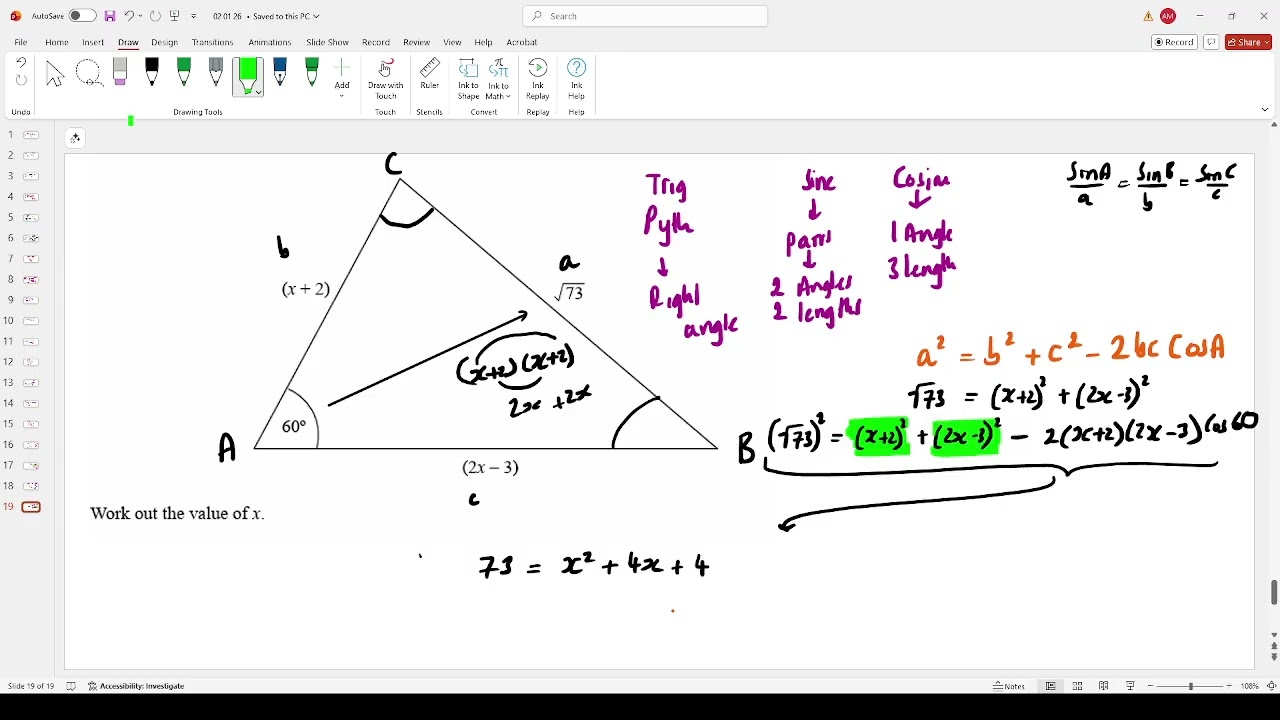 AutoSave Off 02 01 26 • Saved to this PC Search AM
File Home Insert Draw Design Transitions Animations Slide Show Record Review View Help Acrobat Record Share
Undo
Add
Draw with Touch
Ruler
Ink to Shape
Ink to Math
Ink Replay
Ink Help
Undo Drawing Tools Touch Stencils Convert Replay Help
1
2
3
4
5
6
7
8
9
10
11
12
13
14
15
16
17
18
19
C
b
(x + 2)
a
√73
(x+2)(x+2)
2x +2x
60°
A
B
(2x – 3)
c
Trig
Pyth
↓
Right
angle
Sine
↓
Pairs
↓
2 Angles
2 lengths
Cosine
↓
1 Angle
3 length
SinA/a = SinB/b = SinC/c
a² = b² + c² - 2bc CosA
√73 = (x+2)² + (2x-3)²
(√73)² = (x+2)² + (2x-3)² - 2(x+2)(2x-3) Cos 60
Work out the value of x.
73 = x² + 4x + 4
Slide 19 of 19 Accessibility: Investigate Notes 108%